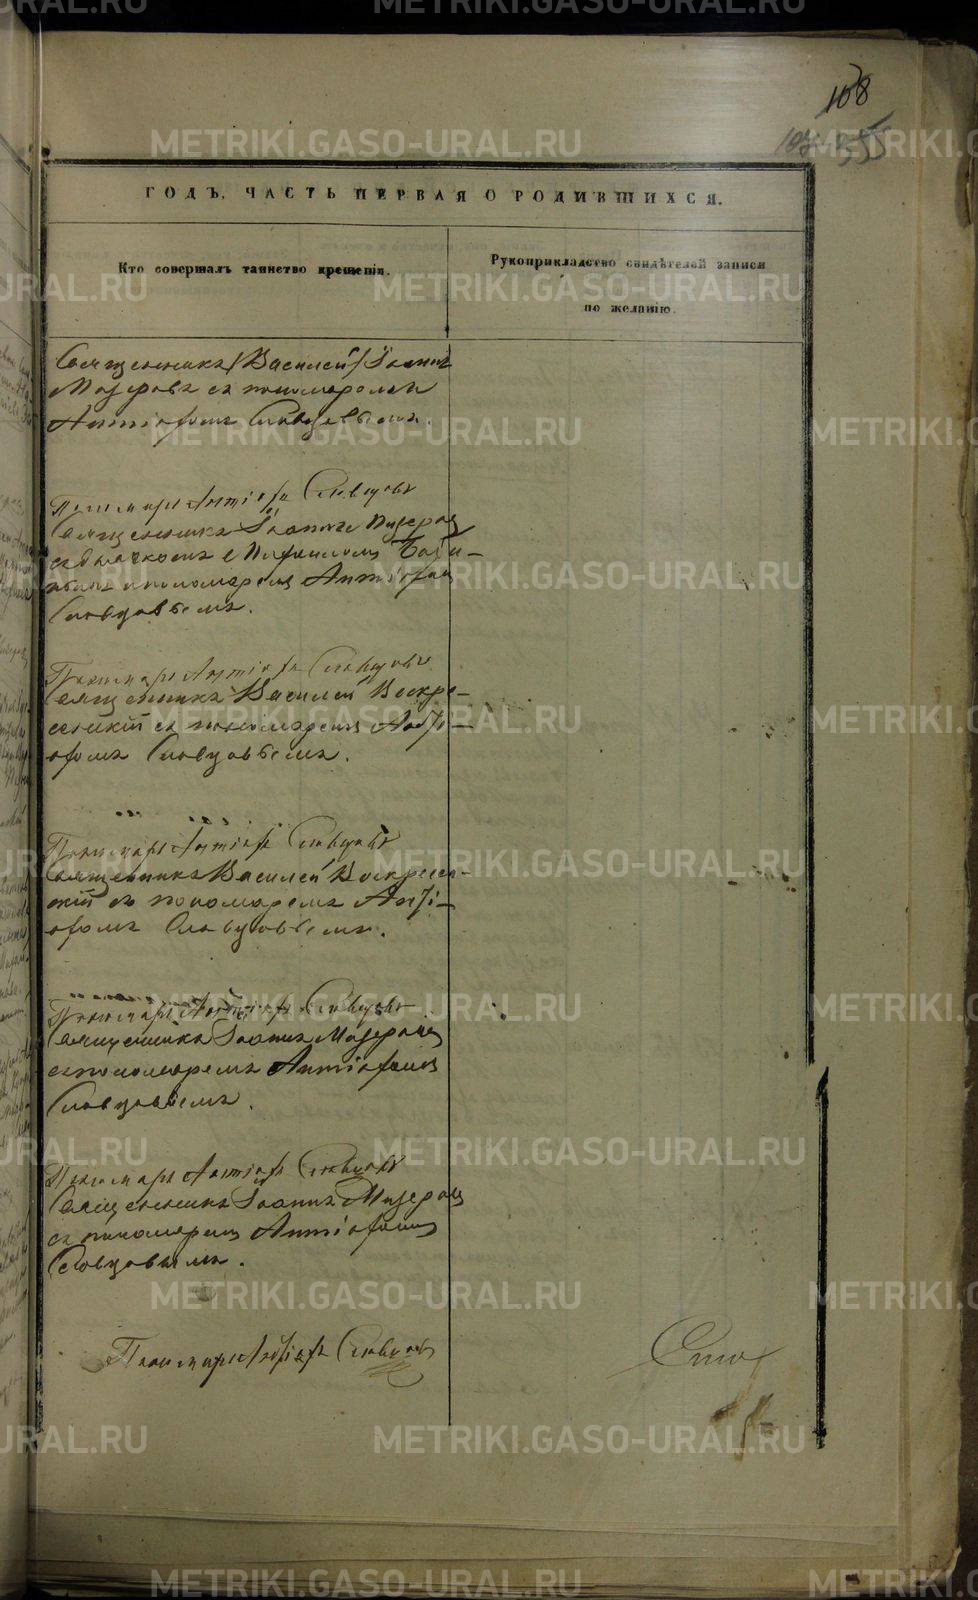 108
ГОДЪ. ЧАСТЬ ПЕРВАЯ О РОДИВШИХСЯ.
Кто совершалъ таинство крещенія.
Рукоприкладство свидѣтелей записи
по желанію.
Священникъ Василей Іоаннъ
Мизеровъ съ пономаремъ
Антіофомъ Словцовымъ.
Пономарь Антіофъ Словцовъ
Священникъ Іоаннъ Мизеровъ
съ дьячкомъ
и пономаремъ Антіофомъ
Словцовымъ.
Пономарь Антіофъ Словцовъ
Священникъ Василей Воскре-
сенскій съ пономаремъ Антіо-
фомъ Словцовымъ.
Пономарь Антіофъ Словцовъ
Священникъ Василей Воскресен-
скій съ пономаремъ Анті-
офомъ Словцовымъ.
Пономарь Антіофъ Словцовъ
Священникъ Іоаннъ Мизеровъ
съ пономаремъ Антіофомъ
Словцовымъ.
Пономарь Антіофъ Словцовъ
Священникъ Іоаннъ Мизеровъ
съ пономаремъ Антіофомъ
Словцовымъ.
Пономарь Антіофъ Словцовъ
Сто
METRIKI.GASO-URAL.RU